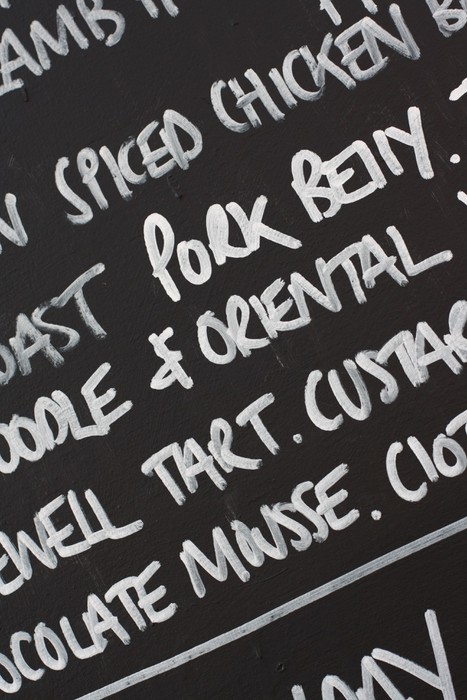 LAMB
N SPICED CHICKEN B
OAST PORK BELLY.
OODLE & ORIENTAL
EWELL TART. CUSTAR
OCOLATE MOUSSE. CLOT
OMY